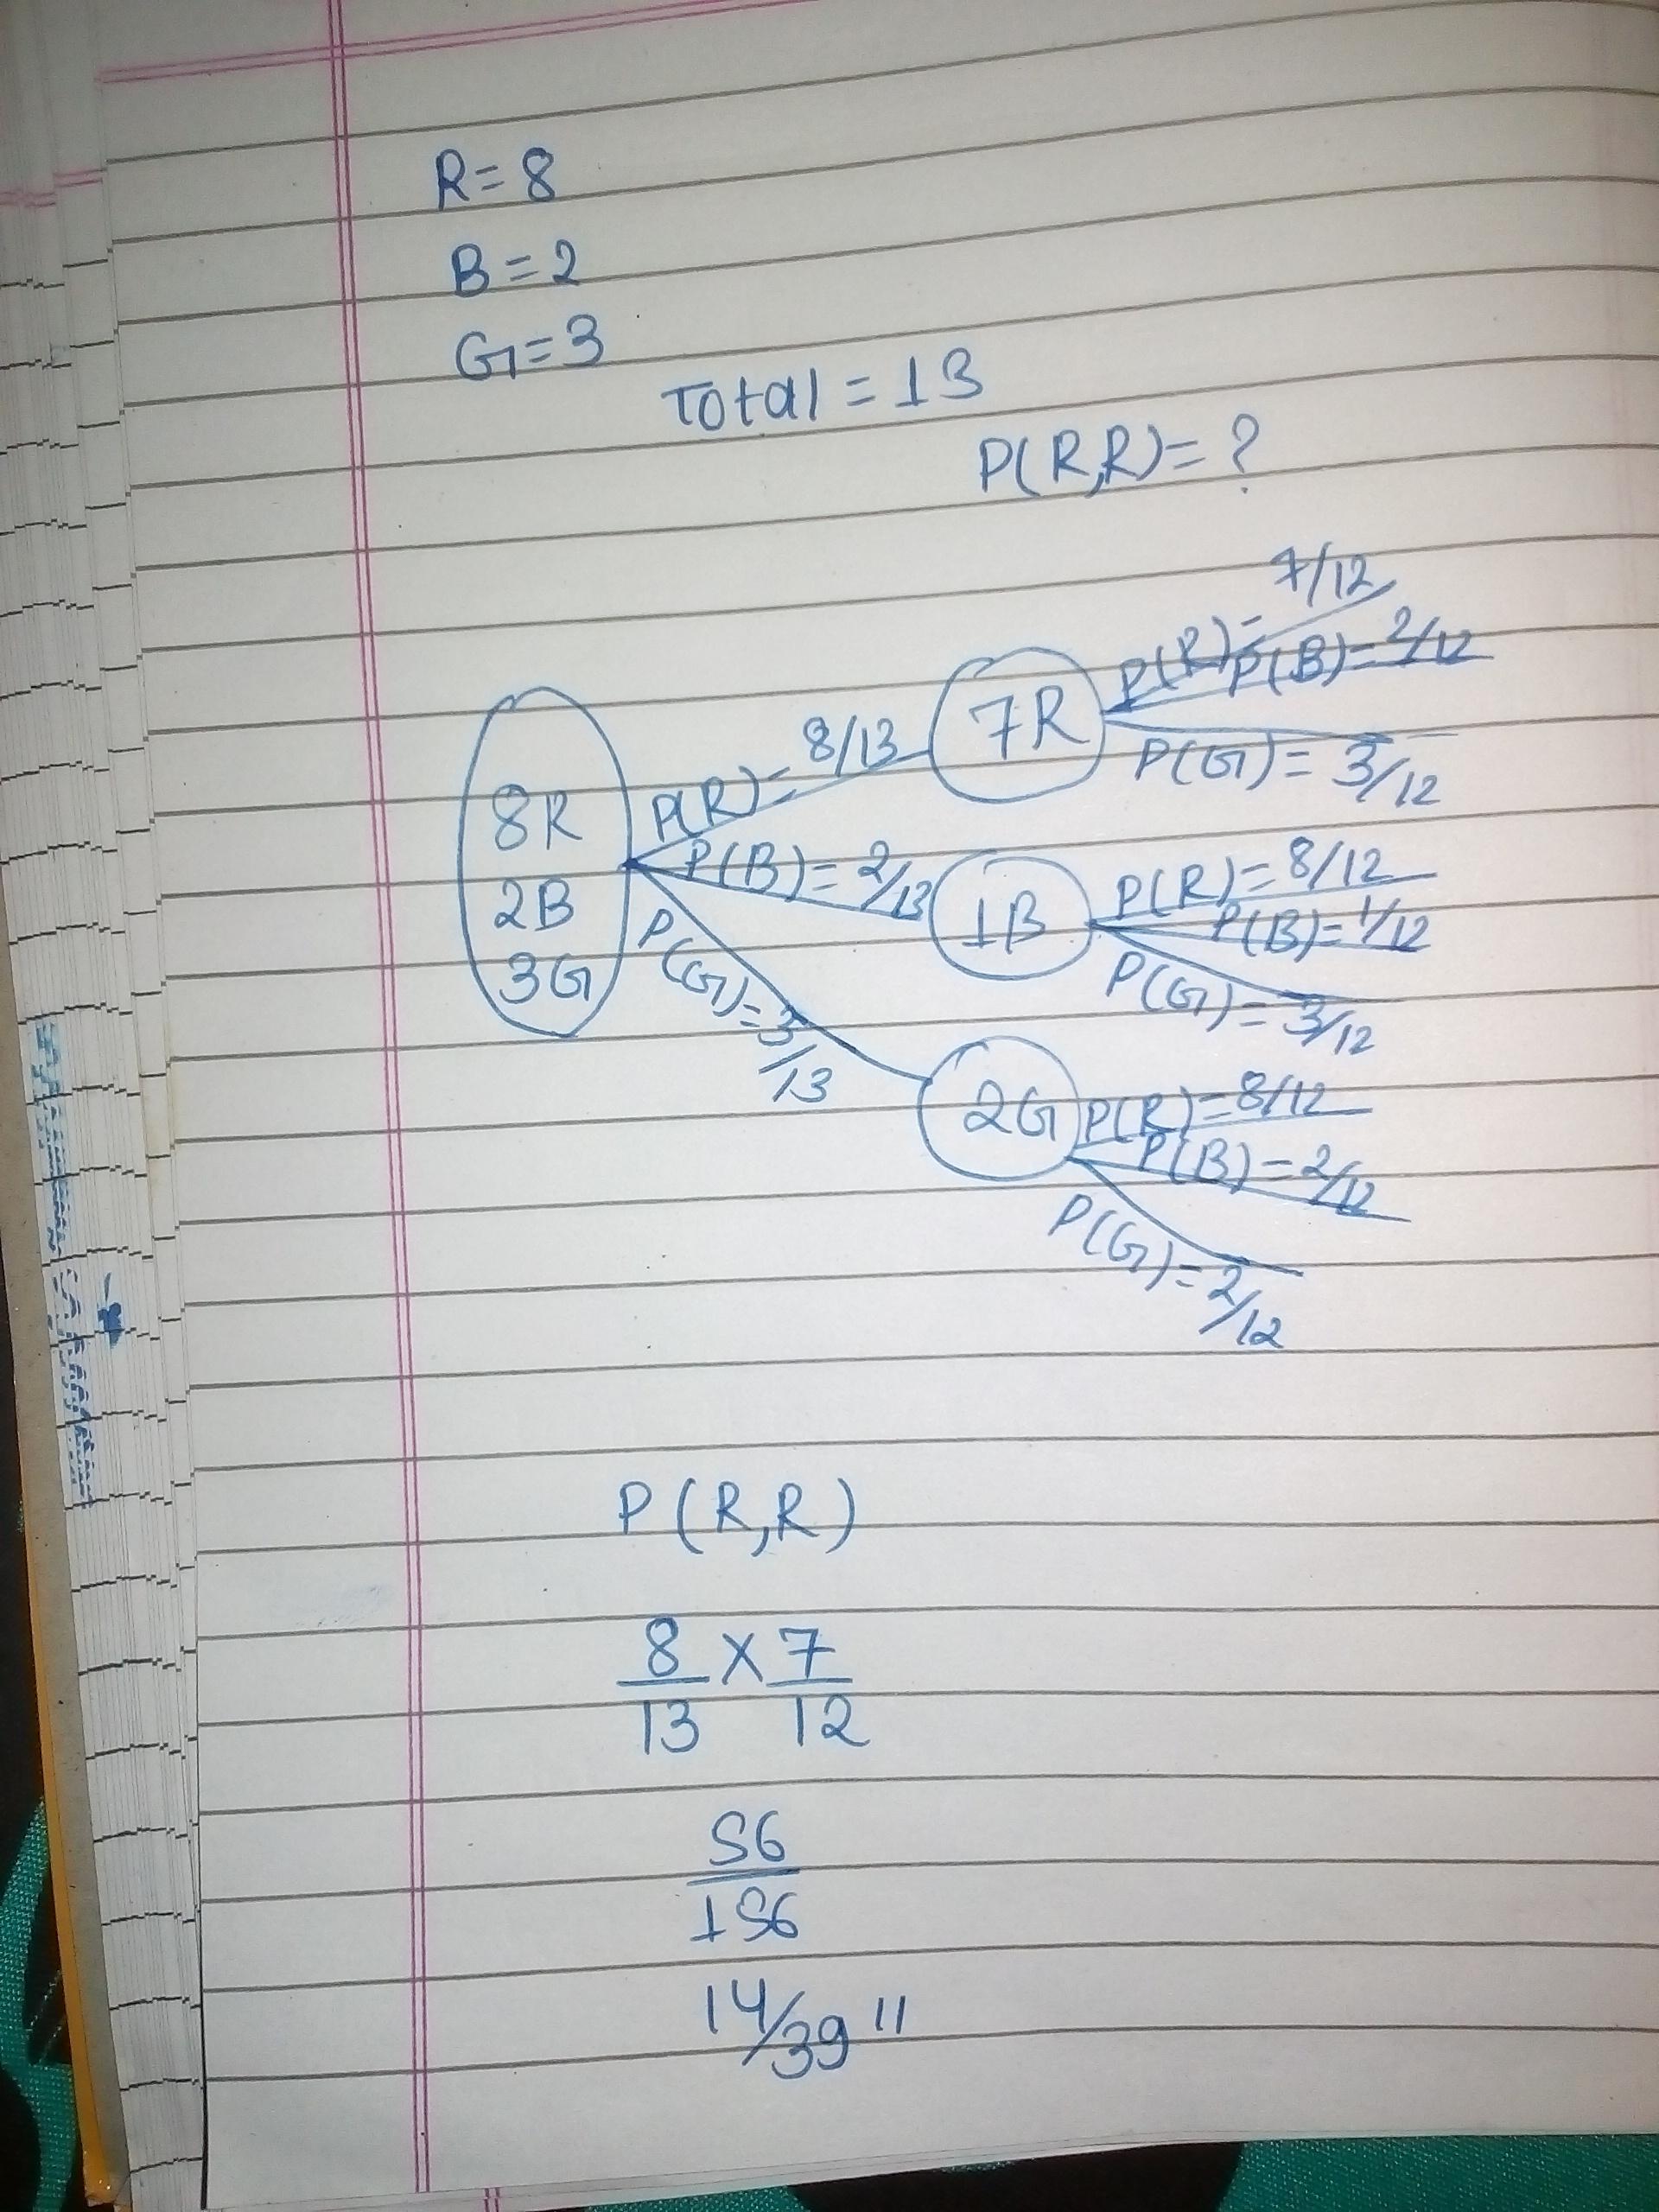 R=8
B=2
G=3
Total = 13
P(R,R)= ?
8R
2B
3G
P(R)= 8/13
P(B)= 2/13
P(G)=3/13
7R
P(R)= 7/12
P(B)= 2/12
P(G)= 3/12
1B
P(R)=8/12
P(B)=1/12
P(G)=3/12
2G
P(R)=8/12
P(B)=2/12
P(G)=2/12
P(R,R)
8/13 × 7/12
56/156
14/39 "